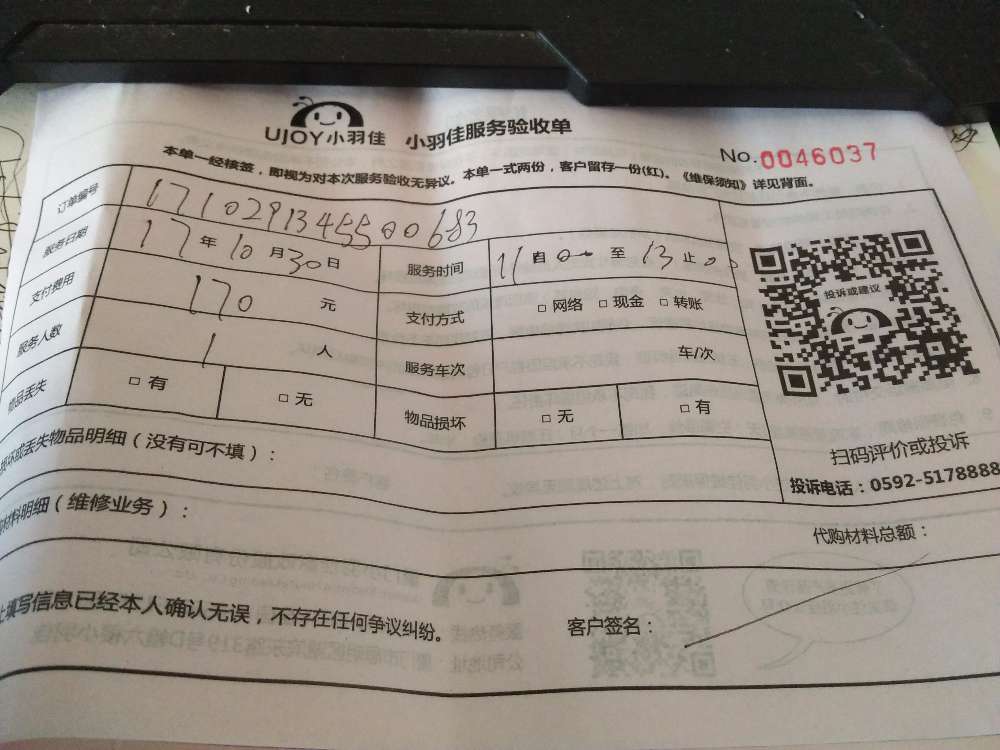 UJOY小羽佳 小羽佳服务验收单
No.0046037
本单一经核签，即视为对本次服务验收无异议。本单一式两份，客户留存一份(红)。《维保须知》详见背面。
订单编号 1710291345500683
服务日期 17年10月30日 服务时间 11自00至13止00
支付费用 170元 支付方式 □网络 □现金 □转账
服务人数 1人 服务车次 车/次
物品丢失 □有 □无 物品损坏 □无 □有
投诉或建议
扫码评价或投诉
投诉电话：0592-5178888
损坏或丢失物品明细（没有可不填）：
材料明细（维修业务）：
代购材料总额：
上填写信息已经本人确认无误，不存在任何争议纠纷。
客户签名：